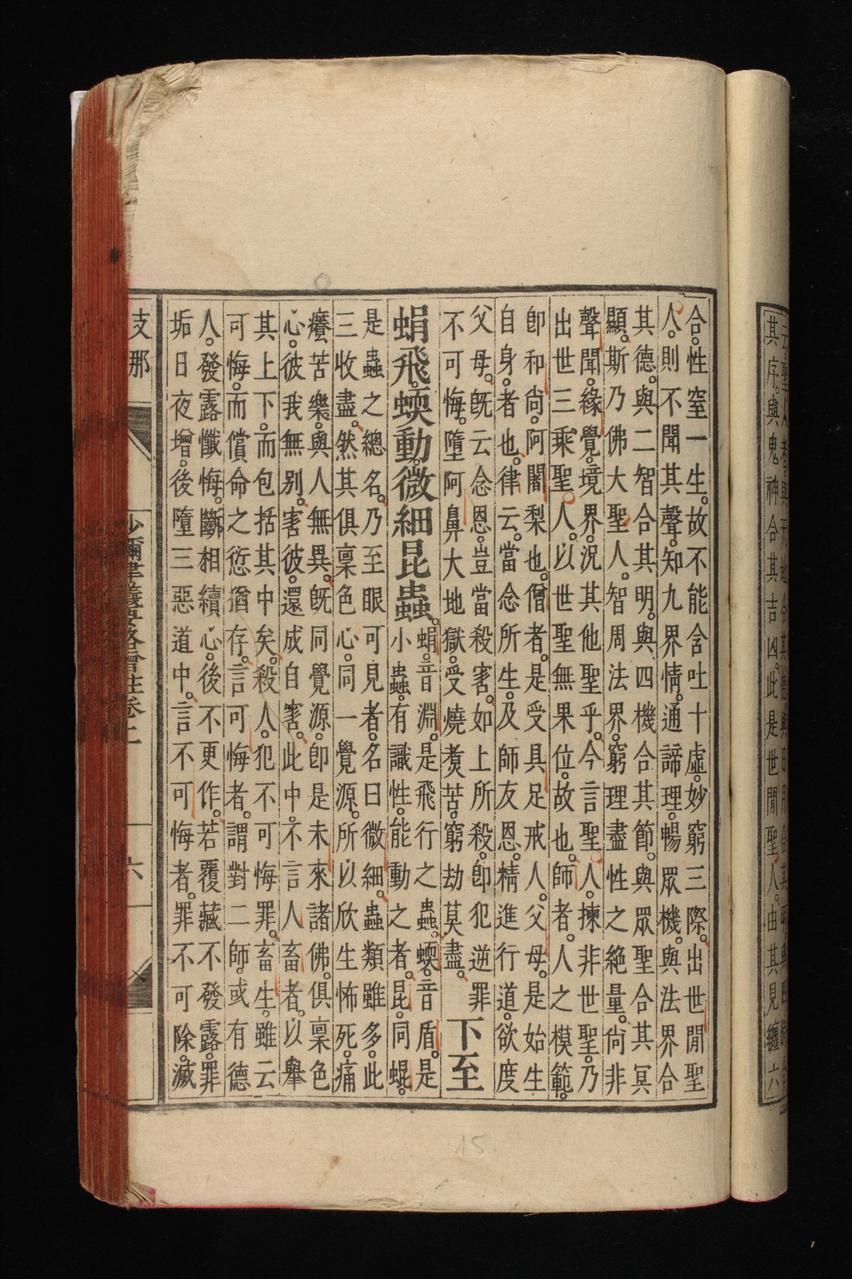 其序。與鬼神合其吉凶。此是世閒聖人。由其見纏六
合。性窒一生。故不能含吐十虛。妙窮三際。出世閒聖
人。則不聞其聲。知九界情。通諦理。暢眾機。與法界合
其德。與二智合其明。與四機合其節。與眾聖合其冥
顯。斯乃佛大聖人。智周法界。窮理盡性之絕量。尙非
聲聞。緣覺。境界。況其他聖乎。今言聖人。揀非世聖。乃
出世三乘聖人。以世聖無果位。故也。師者。人之模範。
卽和尙。阿闍梨也。僧者。是受具足戒人。父母。是始生
自身。者也。律云。當念所生。及師友恩。精進行道。欲度
父母。旣云念恩。豈當殺害。如上所殺。卽犯逆罪
不可悔。墮阿鼻大地獄。受燒煑苦。窮劫莫盡。
下至
蜎飛。蝡動。微細昆蟲。
蜎音淵。是飛行之蟲。蝡。音盾。是
小蟲。有識性。能動之者。昆。同蜫。
是蟲之總名。乃至眼可見者。名曰微細。蟲類雖多。此
三收盡。然其俱稟色心。同一覺源。所以欣生怖死。痛
癢苦樂。與人無異。旣同覺源。卽是未來諸佛。俱稟色
心。彼我無別。害彼。還成自害。此中。不言人畜者。以舉
其上下。而包括其中矣。殺人。犯不可悔罪。畜生。雖云
可悔。而償命之愆猶存。言可悔者。謂對二師。或有德
人。發露懺悔。斷相續心。後不更作。若覆藏不發露。罪
垢日夜增。後墮三惡道中。言不可悔者。罪不可除。滅
支那
沙彌律儀要略增註卷上
六
15